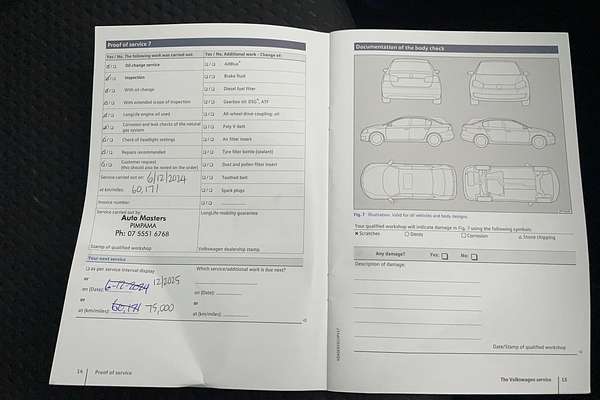 Proof of service 7
Yes / No: The following work was carried out:
Oil change service
Inspection
With oil change
With extended scope of inspection
LongLife engine oil used
Corrosion and leak checks of the natural gas system
Check of headlight settings
Repairs recommended
Customer request
(this should also be noted on the order)
Service carried out on: 6/12/2024
at km/miles: 60,171
Invoice number
Service carried out by:
Auto Masters
PIMPAMA
Ph: 07 5551 6768
Stamp of qualified workshop
Yes / No: Additional work - Change of:
AdBlue®
Brake fluid
Diesel fuel filter
Gearbox oil: DSG®, ATF
All-wheel drive coupling: oil
Poly V-belt
Air filter insert
Tyre filler bottle (sealant)
Dust and pollen filter insert
Toothed belt
Spark plugs
LongLife mobility guarantee
Volkswagen dealership stamp
Your next service
as per service interval display
or
on (Date): 6-12-2024 12/2025
or
at (km/miles): 60,171 75,000
Which service/additional work is due next?
on (Date):
or
at (km/miles):
14 Proof of service
Documentation of the body check
Fig. 7 Illustration: Valid for all vehicles and body designs.
Your qualified workshop will indicate damage in Fig. 7 using the following symbols:
× Scratches
○ Dents
□ Corrosion
△ Stone chipping
Any damage? Yes: No:
Description of damage:
Date/Stamp of qualified workshop
The Volkswagen service 15